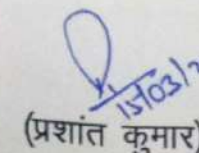 15/03/2
(प्रशांत कुमार)